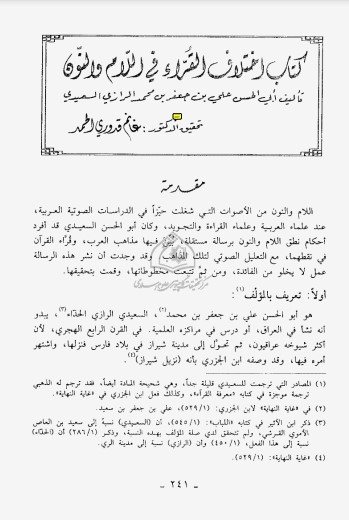 كتاب اختلاف القراء في اللام والنون
تأليف أبي الحسن علي بن جعفر بن محمد الرازي السعيدي
تحقيق الدكتور: غانم قدوري الحمد
مقدمة
اللام والنون من الأصوات التي شغلت حيّزاً في الدراسات الصوتية العربية،
عند علماء العربية وعلماء القراءة والتجويد، وكان أبو الحسن السعيدي قد أفرد
أحكام نطق اللام والنون برسالة مستقلة، بيّن فيها مذاهب العرب، وقُرّاء القرآن
في نطقهما، مع التعليل الصوتي لتلك المذاهب وقد وجدت أن نشر هذه الرسالة
عمل لا يخلو من الفائدة، ومن ثمّ تتبعت مخطوطاتها، وقمت بتحقيقها.
أولاً: تعريف بالمؤلف(١):
هو أبو الحسن علي بن جعفر بن محمد(٢)، السعيدي الرازي الحذاء(٣)، يبدو
أنه نشأ في العراق، أو درس في مراكزه العلمية. في القرن الرابع الهجري، لأن
أكثر شيوخه عراقيون، ثم تحوّل إلى مدينة شيراز في بلاد فارس فنزلها، واشتهر
أمره فيها، وقد وصفه ابن الجزري بأنه (نزيل شيراز)(٤).
(١) المصادر التي ترجمت للسعيدي قليلة جداً، وهي شحيحة المادة أيضاً، فقد ترجم له الذهبي
ترجمة موجزة في كتابه «معرفة القراء»، وكذلك فعل ابن الجزري في كتابه «غاية النهاية».
(٢) في «غاية النهاية» لابن الجزري: (٥٢٩/١)، علي بن جعفر بن سعيد.
(٣) ذكر ابن الأثير في كتابه «اللباب»: (٥٤٥/١)، أن (السعيدي) نسبة إلى سعيد بن العاص
الأموي القرشي، ولم تتحقق لدي صلة المؤلف بهذه النسبة، وذكر (٢٨٦/١) أن (الحذاء)
نسبة إلى هذا الفعل، (٤٥٠/١) وأن (الرازي) نسبة إلى مدينة الري.
(٤) «غاية النهاية»: (٥٢٩/١).
- ٢٤١ -